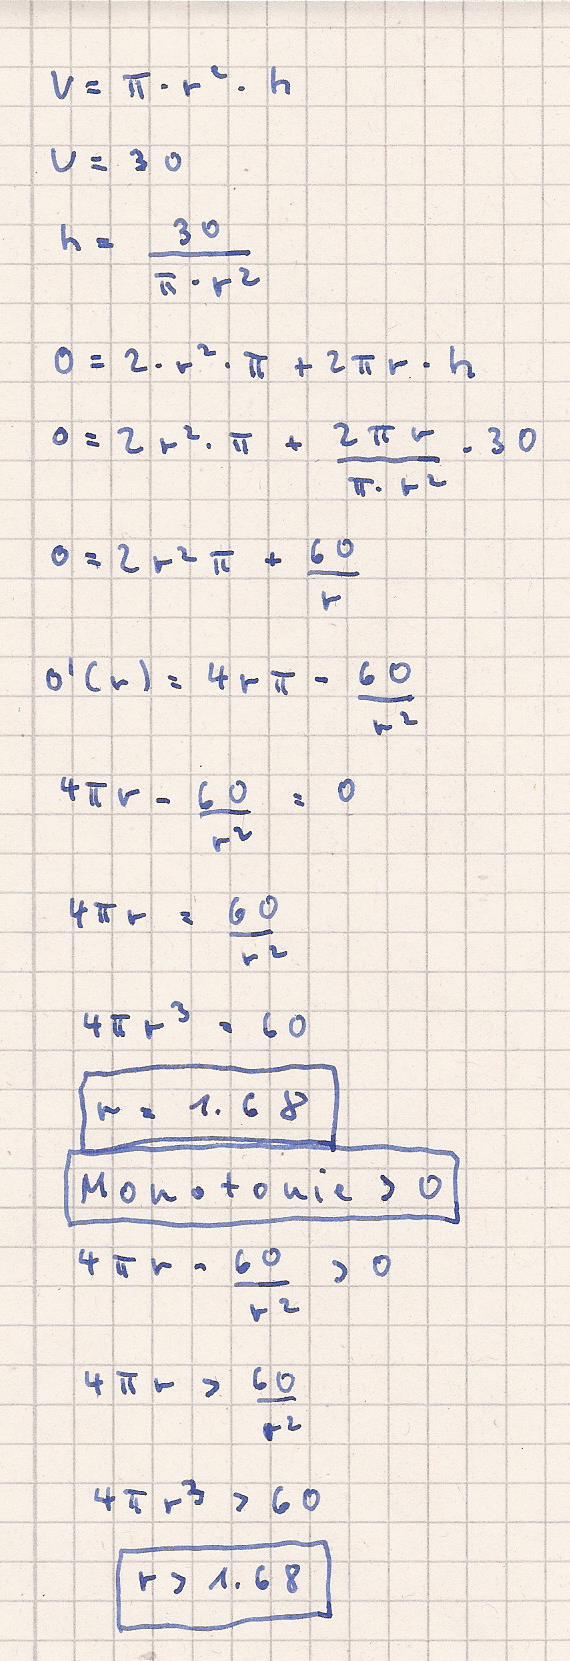 V = π · r² · h
V = 30
h = 30 / (π · r²)
O = 2 · r² · π + 2πr · h
O = 2r² · π + (2πr / (π · r²)) · 30
O = 2r²π + 60/r
O'(r) = 4rπ - 60/r²
4πr - 60/r² = 0
4πr = 60/r²
4πr³ = 60
r = 1.68
Monotonie > 0
4πr - 60/r² > 0
4πr > 60/r²
4πr³ > 60
r > 1.68